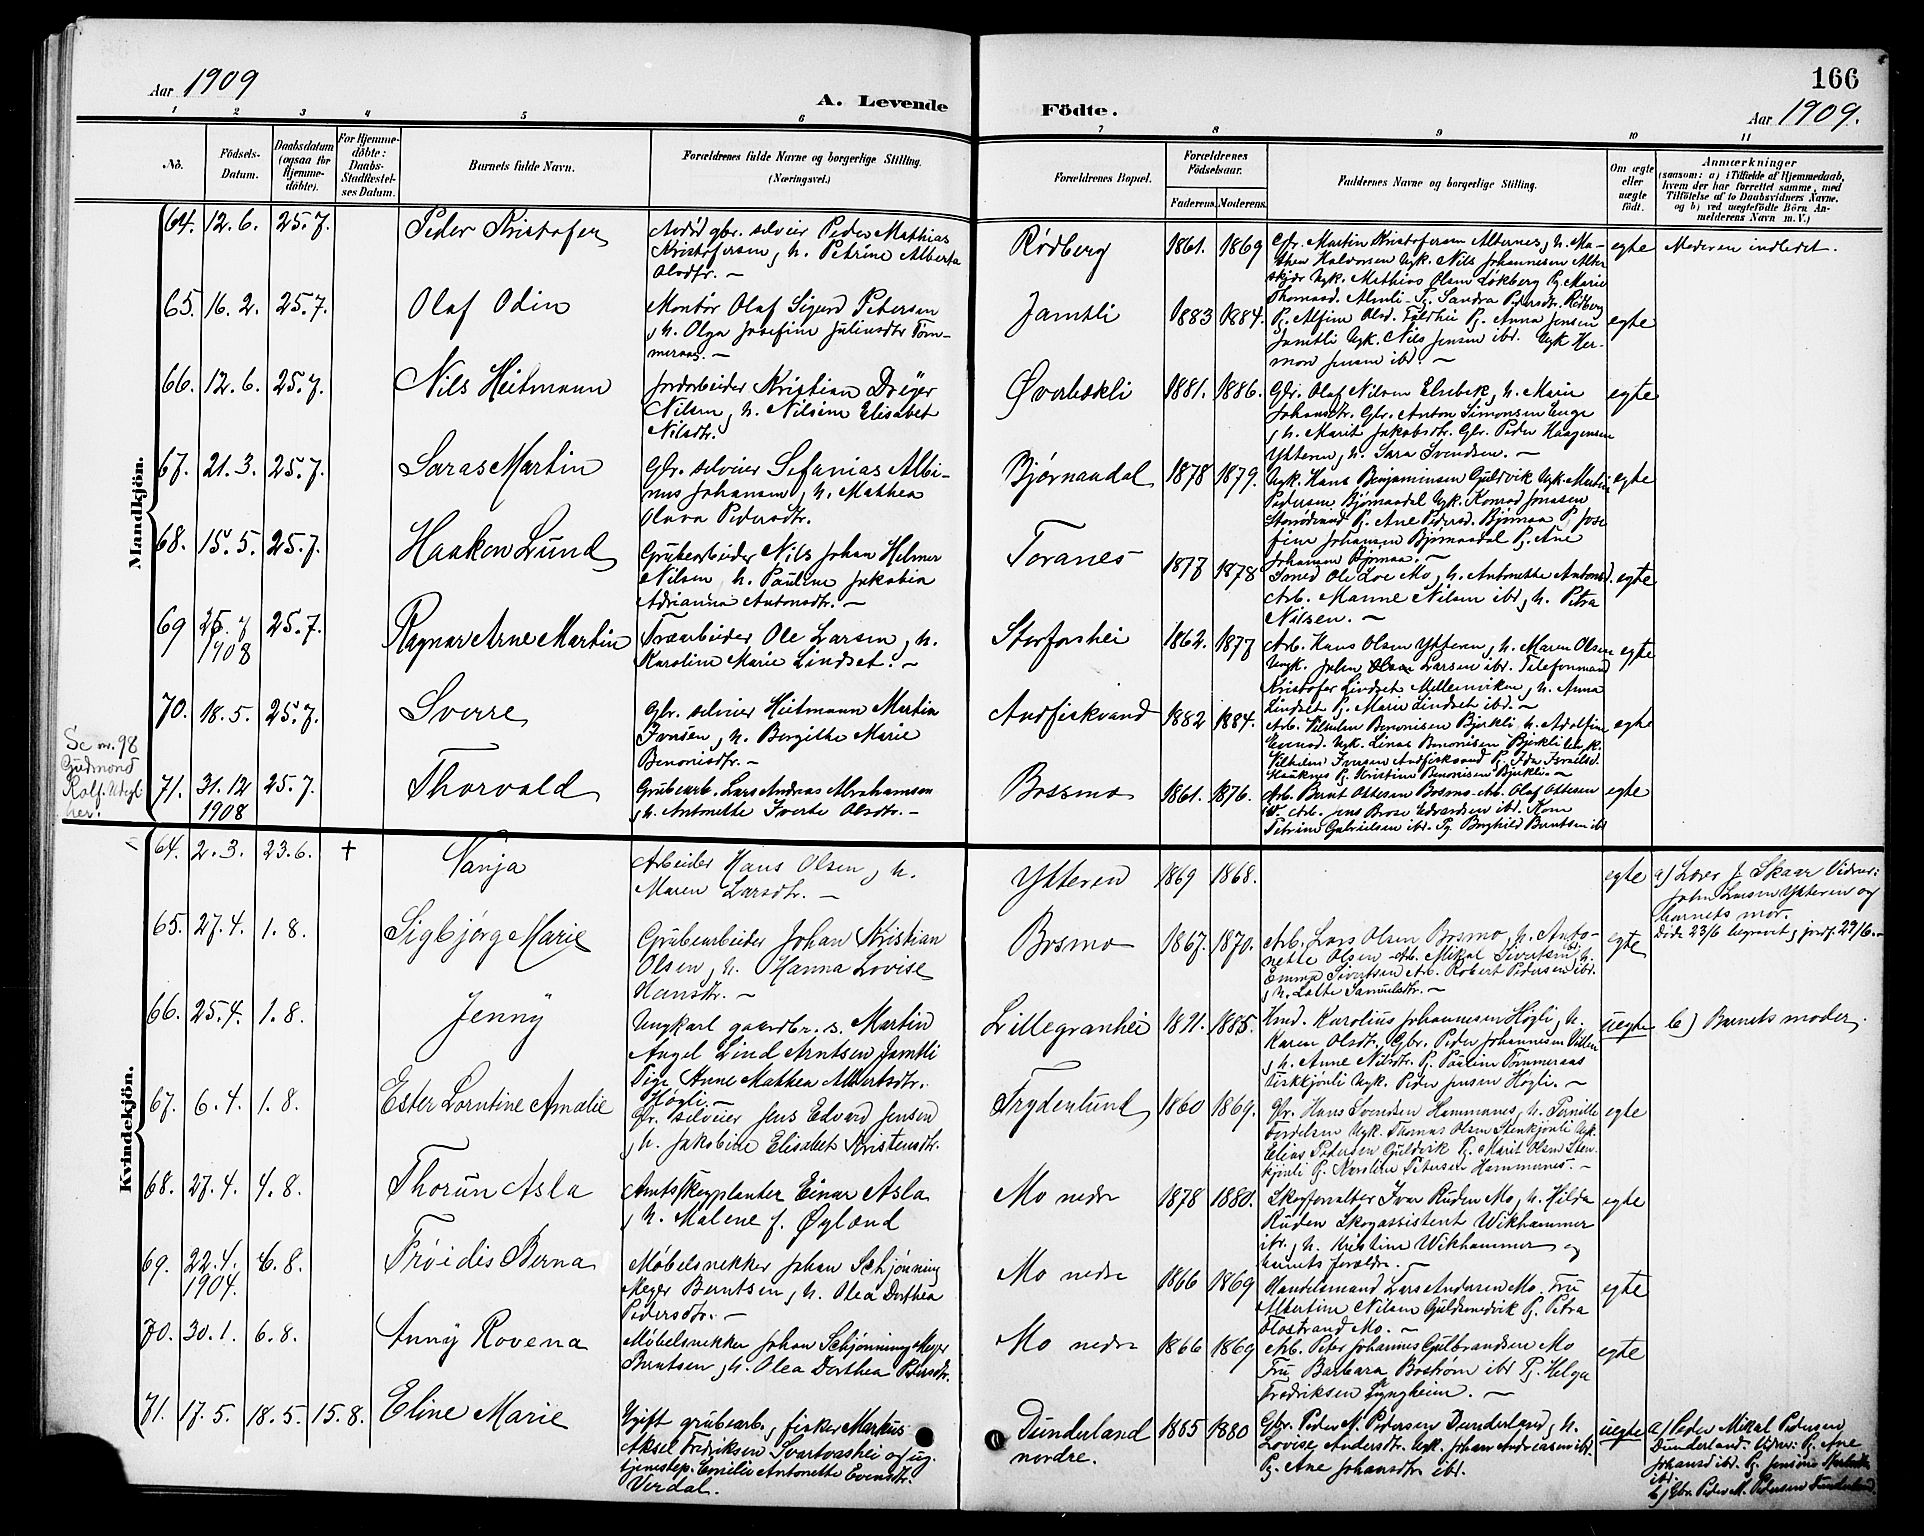 Aar 1909
A. Levende Födte.
166
Aar 1909.
1 2 3 4 5 6 7 8 9 10 11
No.
Födsels-Datum.
Daabsdatum (ogsaa for Hjemme-döbte).
For Hjemme-döbte: Daabs-Stadfæstel-ses Datum.
Barnets fulde Navn.
Forældrenes fulde Navne og borgerlige Stilling.
(Næringsvei.)
Forældrenes Bopæl.
Forældrenes Födselsaar.
Faderens. Moderens.
Faddernes Navne og borgerlige Stilling.
Om ægte eller uægte födt.
Anmærkninger
(saasom: a) i Tilfælde af Hjemmedaab,
hvem der har forrettet samme, med
Tilföielse af to Daabsvidners Navne.
og b) ved uægtefödte Börn An-
melderens Navn m. V.)
Mandkjön.
64. 12.6. 25.7. Peder Kristofer
gbr. selveier Peder Mathias
Kristofersen, h. Petrine Alberta
Olsdtr. —
Rödberg 1861. 1869
Gbr. Martin Kristofersen Alternes, h. Ma-
Halvorsen Ugk. Nils Johannesen Alter
Ugk. Mathias Olsen Lökberg Pg. Marie
Thomasd. Almli - Pg. Sandra Pedersdtr. Rödberg
egte Moderen indledet.
65. 16.2. 25.7. Olaf Odin
Montör Olaf Sigurd Petersen
, h. Olga Josefine Juliusdtr Töm-
meraas. —
Jamtli 1883 1884.
Pg. Alfine Olsd. Pg. Anna Jensen
Jamtli Ugk. Nils Jensen ibd. Ugk Her-
mon Jensen ibd. —
egte
66. 12.6. 25.7. Nils Heitmann
Jordarbeider Kristian Dreyer
Nilsen, h. Nilsine Elisabet
Nilsdtr.
Øverbekli 1881. 1886.
Gbr. Olaf Nilsen Elsebek, h. Marie
Johansdtr. Gbr. Anton Simonsen Enge
, h. Marit Jakobsdtr. Gbr. Peder Haagensen
Ytteren, h. Sara Svendsen. —
egte
67. 21.3. 25.7. Saras Martin
Gbr. selveier Sefanias Albi-
nus Johansen, h. Mathea
Olava Pedersdtr.
Bjørnaadal 1878 1879.
Ugk. Hans Benjaminsen Guldvik Ugk. Martin
Pedersen Bjørnaadal Ugk. Konrad Jonassen
Pg. Ane Pedersd. Bjørnaa Pg. Jose
fine Johansen Bjørnaadal Pg. Ane
Johansen Bjørnaa. —
egte
68. 15.5. 25.7. Haakon Lund
Grubearbeider Nils Johan Helmer
Nilsen, h. Pauline Jakobia
Adrianna Antonsdtr. —
Toranes 1877 1878
Smed Ole Loe Mo, h. Antonette Antonsd.
Arb. Manne Nilsen ibd, h. Petra
Nilsen. —
egte
69 25.7 1908 25.7. Ragnar Arne Martin
Træarbeider Ole Larsen, h.
Karoline Marie Lindset. —
Storforshei 1862. 1877
Arb. Hans Olsen Ytteren, h. Maren Olsen
Ugk. John Olsen Larsen ibd. Telefonmand
Kristofer Lindset Mellemviken, h. Anna
Lindset Pg. Marie Lindset ibd. —
egte
70. 18.5. 25.7 Sverre
Gbr. selveier Heitmann Martin
Iversen, h. Bergithe Marie
Benonisdtr. —
Andfiskvand 1882 1884.
Arb. Vilhelm Benonisen Bjerkli, h. Adolfine
Ugk. Linus Benonisen Bjerkli Ugk.
Vilhelm Iversen Andfiskvand Pg. Ida Israelsd.
Hauknes Pg. Kristine Benonisen Bjerkli. —
egte
Se nr. 98
Gudmund
Rolf.
her.
71. 31.12 1908 25.7. Thorvald
Grubearb. Lars Andreas Abrahamsen
, h. Antonette Iverte Olsdtr. —
Bossmo 1861. 1876.
Arb. Bernt Ottesen Bosmo. Arb. Olaf Ottesen
Arb. Jens Brose Edvardsen ibd. Kone
Petrine Gabrielsen ibd. Pg. Borghild Berntsen ibd
egte
Kvindekjön.
64. 2.3. 23.6. + Vanja
Arbeider Hans Olsen, h.
Maren Larsdtr. —
Ytteren 1869 1868.
egte
a) Lærer J. Skaar Vidner:
John Larsen Ytteren og
barnets mor.
Död 23/6 begravet, jordf. 29/6.—
65. 27.4. 1.8. Sigbjørg Marie
Grubearbeider Johan Kristian
Olsen, h. Hanna Lovise
Hansdtr. —
Bosmo 1867. 1870.
Arb. Lars Olsen Bosmo, h. Anto-
nette Olsen Arb. Mikal Sivertsen ibd, h.
Emma Sivertsen Arb. Robert Pedersen ibd.
, h. Lotte Samuelsdtr. —
egte
66. 25.4. 1.8. Jenny
Ungkarl gaardbr. s. Martin
Angel Lind Arntsen Jamtli
Pige Anne Mathea Albertsdtr.
Högli. —
Lillegranhei 1881. 1885.
Kmd. Karolius Johannesen Högli, h.
Karen Olsdtr. Gbr. Peder Johannesen
, h. Anne Nilsdtr. Pg. Pauline Tömmeraas
Fiskkjönli Ugk. Peder Jensen Högli. —
uegte b) Barnets moder.
67. 6.4. 1.8. Ester Lorntine Amalie
Gbr. selveier Jens Edvard Jensen
, h. Jakobine Elisabet Kristensdtr.
Frydenlund 1860 1869.
Gbr. Hans Svendsen Hammernes, h. Pernille
Ugk. Thomas Olsen Stenkjönli Ugk.
Elias Pedersen Guldvik Pg. Marit Olsen Sten
kjönli Pg. Karoline Petersen Hammernes. —
egte
68. 27.4. 4.8. Thorun Asla
Amtsskogplanter Einar Asla
, h. Malene f. Øgland
Mo nedre 1878 1880.
Skogforvalter Ivar Ruden Mo, h. Hilda
Ruden Skogassistent Wikhammer
ibd, h. Kristine Wikhammer og
barnets forældre. —
egte
69. 22.4. 1904. 6.8. Fröidis Berna
Möbelsnekker Johan Schjønning
Meyer Berntsen, h. Olea Dorthea
Pedersdtr. —
Mo nedre 1866 1869
Handelsmand Lars Andersen Mo. Fru
Albertine Nilsen Guldsmedvik Pg. Petra
Flostrand Mo. —
egte
70. 30.1. 6.8. Anny Rovena
Möbelsnekker Johan Schjønning Meyer
Berntsen, h. Olea Dorthea Pedersdtr.
Mo nedre 1866 1869
Arb. Peter Johannes Gulbrandsen Mo
Fru Barbara Boström ibd Pg. Helga
Fredriksen Lyngheim. —
egte
71. 17.5. 18.5. 15.8. Eline Marie
Ugift grubearb., fisker Markus
Aksel Fredriksen Svartvashei og ug.
tjenestep. Emilie Antonette Evensdtr.
Virdal.
Dunderland nordre. 1885 1880
Gbr. Peder M. Pedersen Dunderland, h.
Lovise Andersdtr. Ugk. Johan Andreassen ibd.
Pg. Ane Johansdtr ibd.
uegte
a) Peder Mikal Pedersen
Dunderland. Vidner: Pg. Ane
Johansd ibd. Pg. Jensine
ibd.
b) Gbr. Peder M. Pedersen Dunderland.